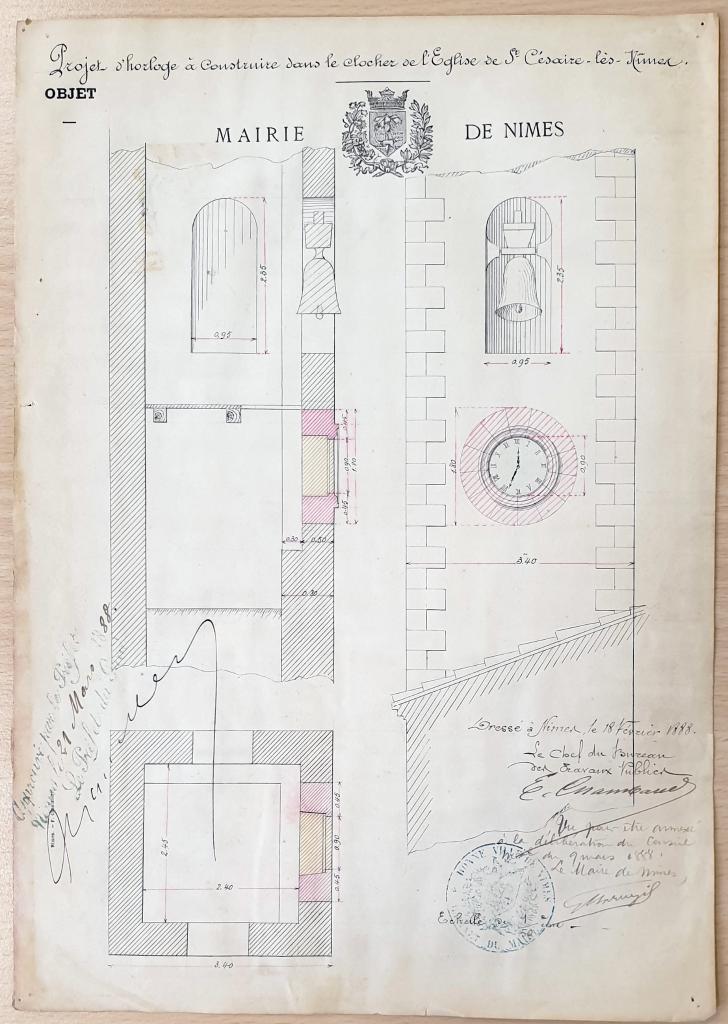 Projet d'horloge à construire dans le clocher de l'Eglise de St Césaire-lès-Nîmes.
OBJET
MAIRIE DE NIMES
2.35
0.95
2.35
0.95
0.45
0.90
1.80
0.45
1.80
0.90
0.30
0.50
3.40
0.80
Approuvé par le Préfet
Nîmes, le 21 Mars 1888.
Le Préfet du Gard
Dressé à Nîmes, le 18 Février 1888.
Le Chef du Bureau
des Travaux Publics
2.45
2.40
0.45
0.90
0.45
3.40
Vu pour être annexé
à la délibération du Conseil
du 9 mars 1888.
Le Maire de Nimes,
Echelle de